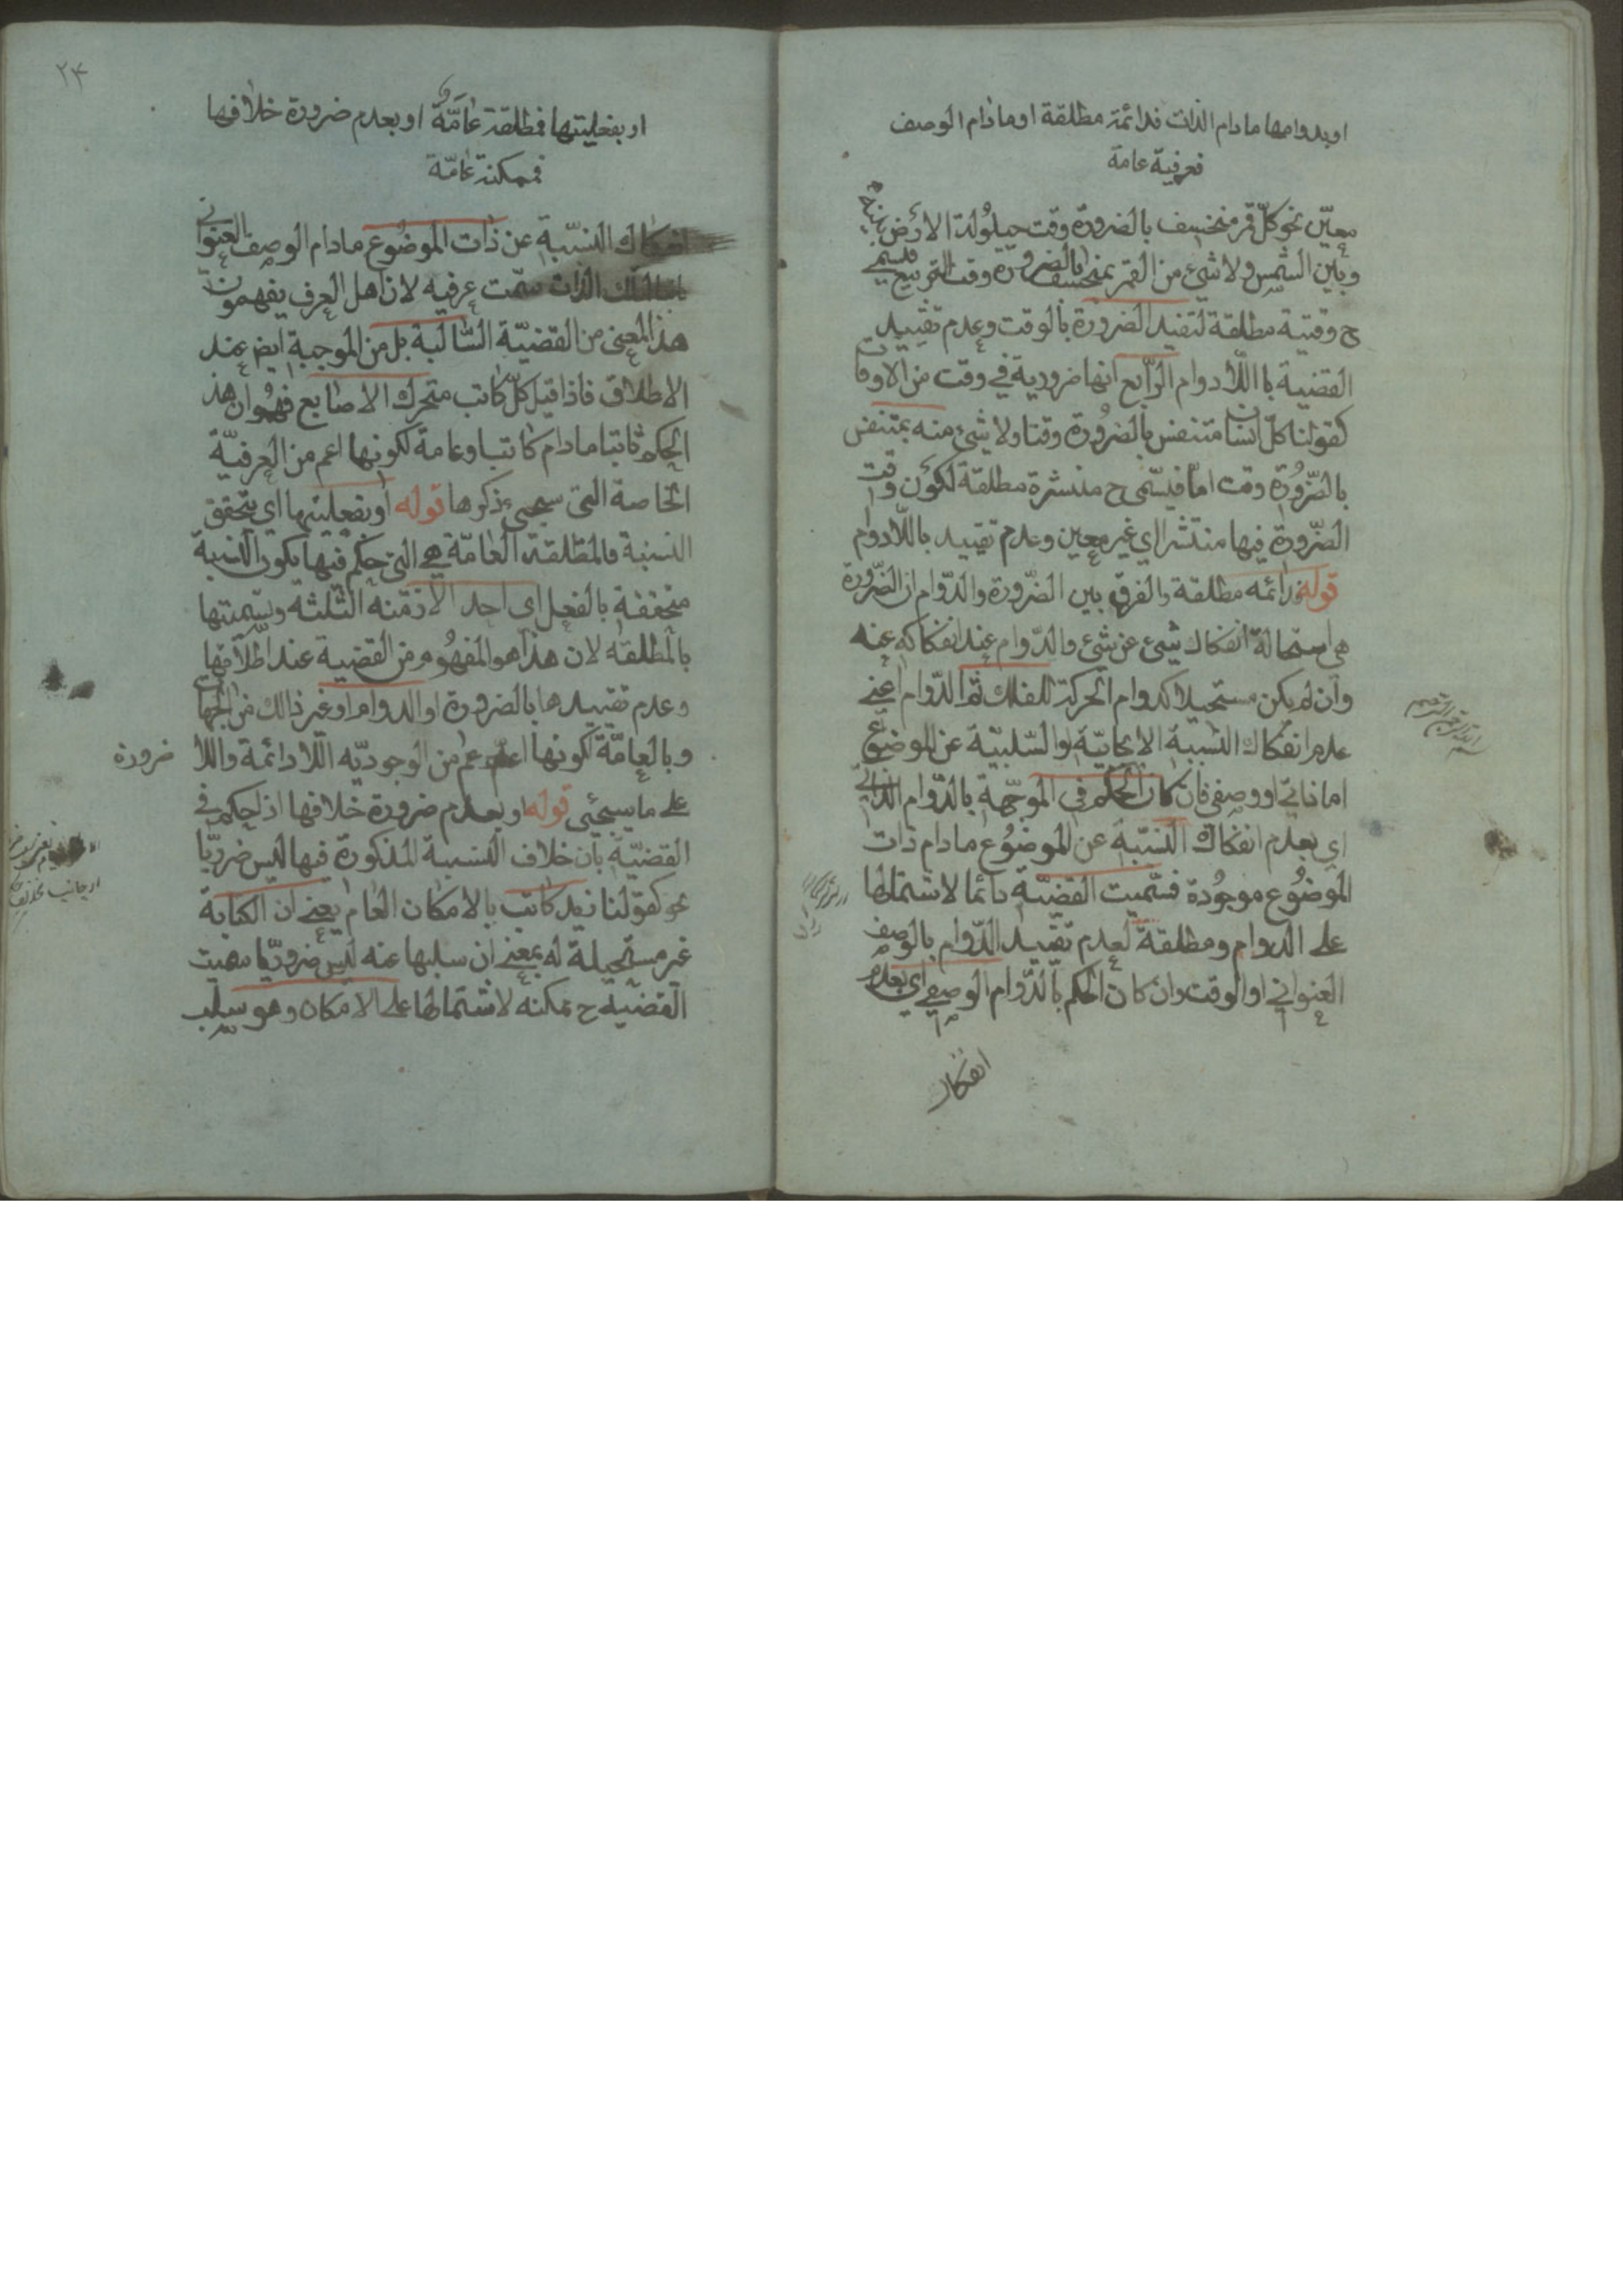 او بدوامها مادام الذات فدائمة مطلقة او مادام الوصف
فعرفية عامة
معيّن نحو كلّ قمر منخسف بالضرورة وقت حيلولة الارض بينه
وبين الشمس ولا شئ من القمر بمنخسف بالضرورة وقت التربيع فيسمى
ح وقتية مطلقة لتقيد الضرورة بالوقت وعدم تقييد
القضية باللّادوام الرّابع انها ضرورية في وقت من الاوقات
كقولنا كلّ انسان متنفس بالضرورة وقتا ولا شئ منه بمتنفس
بالضّرورة وقت امّا فيسمّى ح منتشرة مطلقة لكون وقت
الضّرورة فيها منتشرا اي غير معين وعدم تقييد باللّادوام
قوله فدائمه مطلقة والفرق بين الضّرورة والدّوام ان الضّرورة
هي استحالة انفكاك شئ عن شئ والدّوام عند انفكاكه عنه
وان لم يكن مستحيلا كدوام الحركة للفلك ثم الدّوام اعني
عدم انفكاك النسبة الايجابيّة او السّلبيّة عن الموضوع
اما ذاتي او وصفي فان كان الحكم في الموجّهة بالدّوام الذاتي
اي بعدم انفكاك النسبة عن الموضوع مادام ذات
الموضوع موجودة فسّميت القضيّة دائما لاشتمالها
على الدوام ومطلقة لعدم تقييد الدّوام بالوصف
العنواني او الوقت وان كان الحكم بالدّوام الوصفي اي بعدم
انفكاك
٢۴
او بفعليتها فمطلقة عامّة او بعدم ضرورة خلافها
فممكنة عامّة
انفكاك النسبّة عن ذات الموضوع مادام الوصف العنواني
الذات سمّت عرفيه لان اهل العرف يفهمون
هذا المعنى من القضيّة السّالبة بل من الموجبة ايض عند
الاطلاق فاذا قيل كلّ كاتب متحرك الاصابع فهموا ان هذ
الحكم ثابتا مادام كاتبا وعامة لكونها اعم من العرفيّة
الخاصة التى سيجى ذكرها قوله او بفعليتها اي تحقق
النسبة فالمطلقة العامّة هي التى حكم فيها بكون النسبة
متحققة بالفعل اى احد الازمنه الثّلثه وتسميتها
بالمطلقه لان هذا هو المفهوم من القضية عند اطلاقها
وعدم تقييدها بالضرورة او الدوام او غير ذالك من الجهات
وبالعامّة لكونها اعم من الوجوديّه اللّادائمة واللا ضرورة
على ما سيجئى قوله او بعدم ضرورة خلافها اذ احكم في
القضيّة بان خلاف النسبة المذكورة فيها ليس ضروريّا
نحو كقولنا زيد كاتب بالامكان العام يعني ان الكتابة
غير مستحيلة له بمعنى ان سلبها عنه ليس ضروريّا سميت
القضيّه ح ممكنه لاشتمالها على الامكان وهو سلب